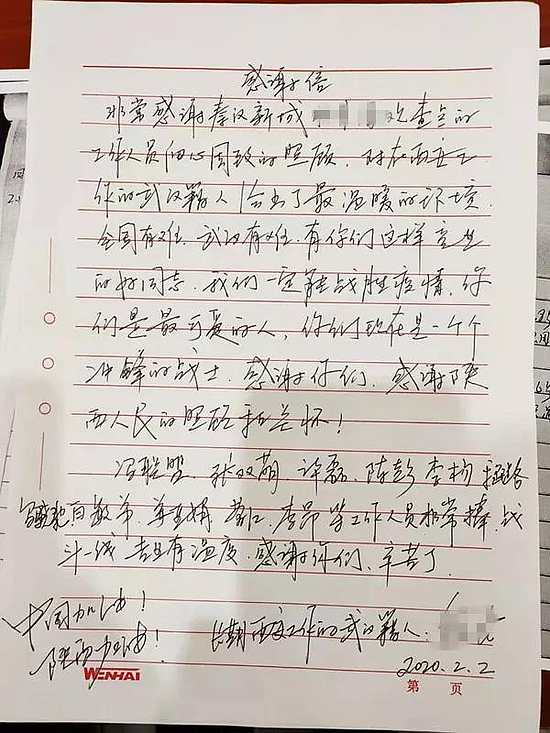 感谢信
非常感谢秦汉新城 检查点的
工作人员细心周致的照顾，对在西安工
作的武汉籍人给出了最温暖的环境.
全国有难，武汉有难，有你们这样
的好同志，我们一定能战胜疫情，你
们是最可爱的人，你们现在是一个个
冲锋的战士，感谢你们，感谢陕
西人民的照顾和关怀！
冯联盟、张双萌、许磊、陈彭、李杨
等工作人员非常棒，战
斗一线 有温度，感谢你们，辛苦了
中国加油！
陕西加油！
长期西安工作的武汉籍人：
2020.2.2
WENHAI
第 页